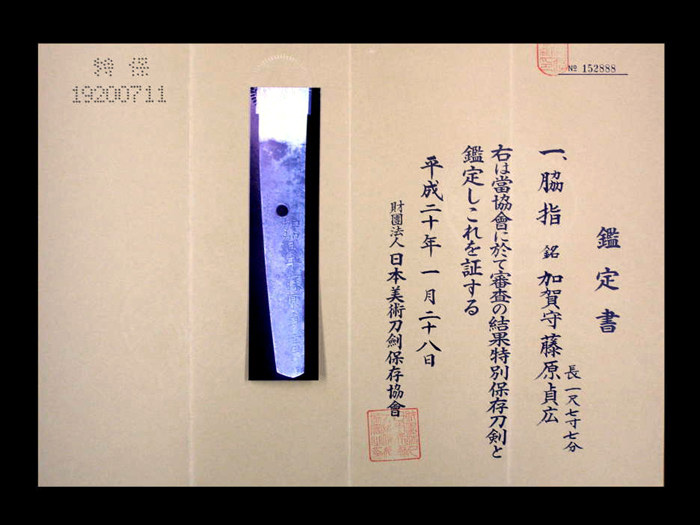 特保
19200711
№ 152888
鑑定書
一、脇指 銘 加賀守藤原貞広
長一尺七寸七分
右は當協會に於て審査の結果特別保存刀劍と
鑑定しこれを証する
平成二十年一月二十八日
財團法人 日本美術刀劍保存協會